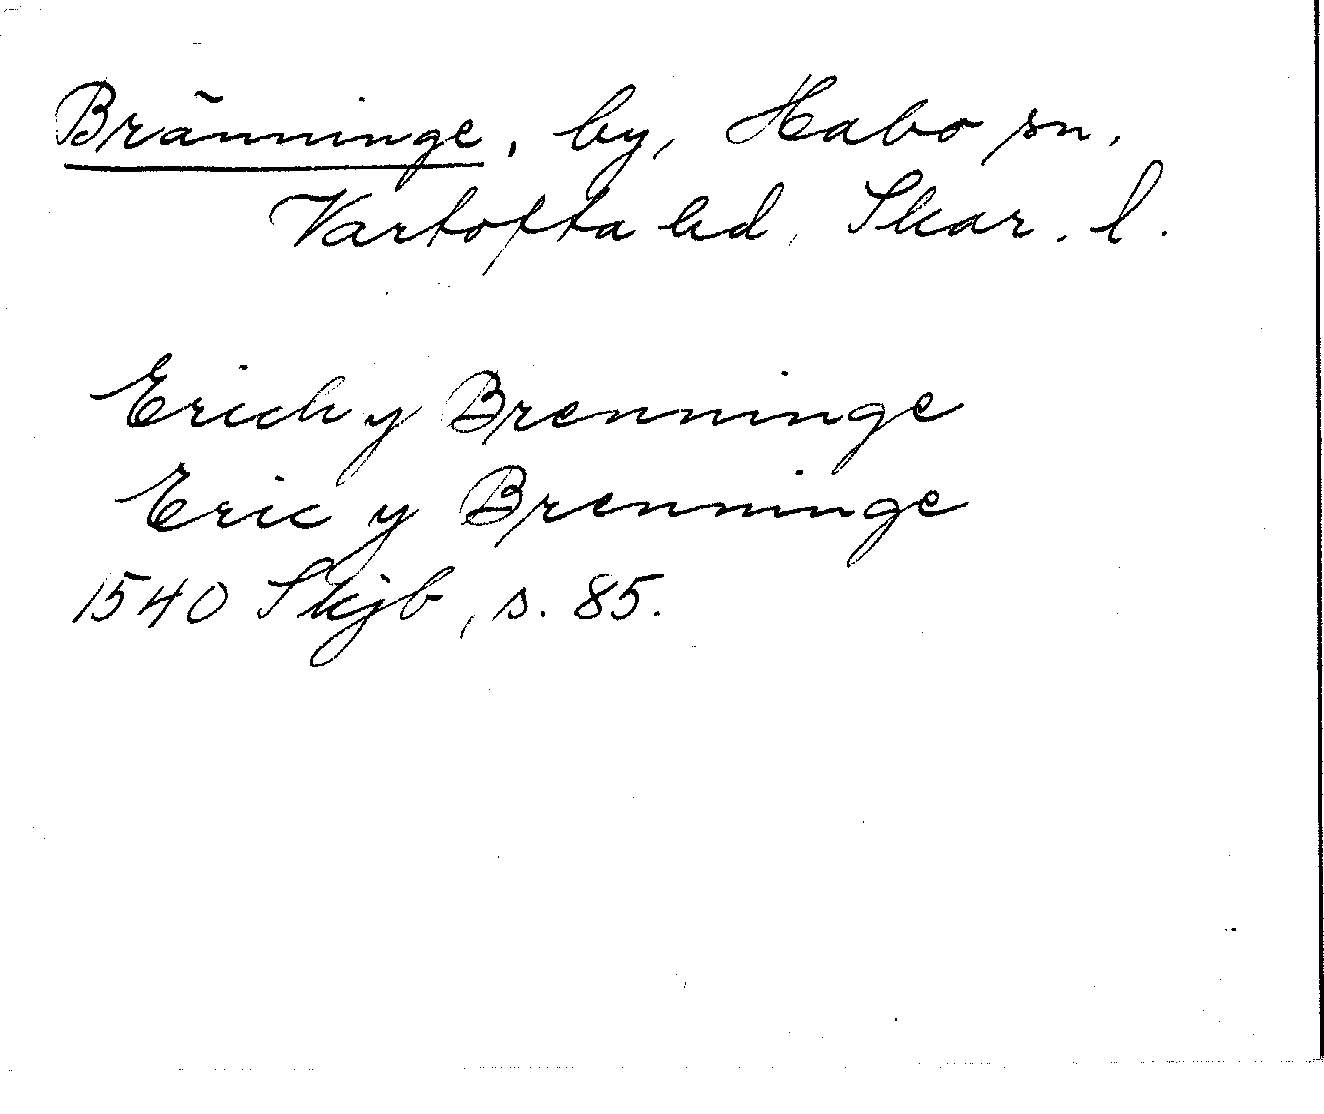 Bränninge, by, Habo sn,
Vartofta hd, Skar. l.
Erich y Brenninge
Eric y Brenninge
1540 Skjb, s. 85.